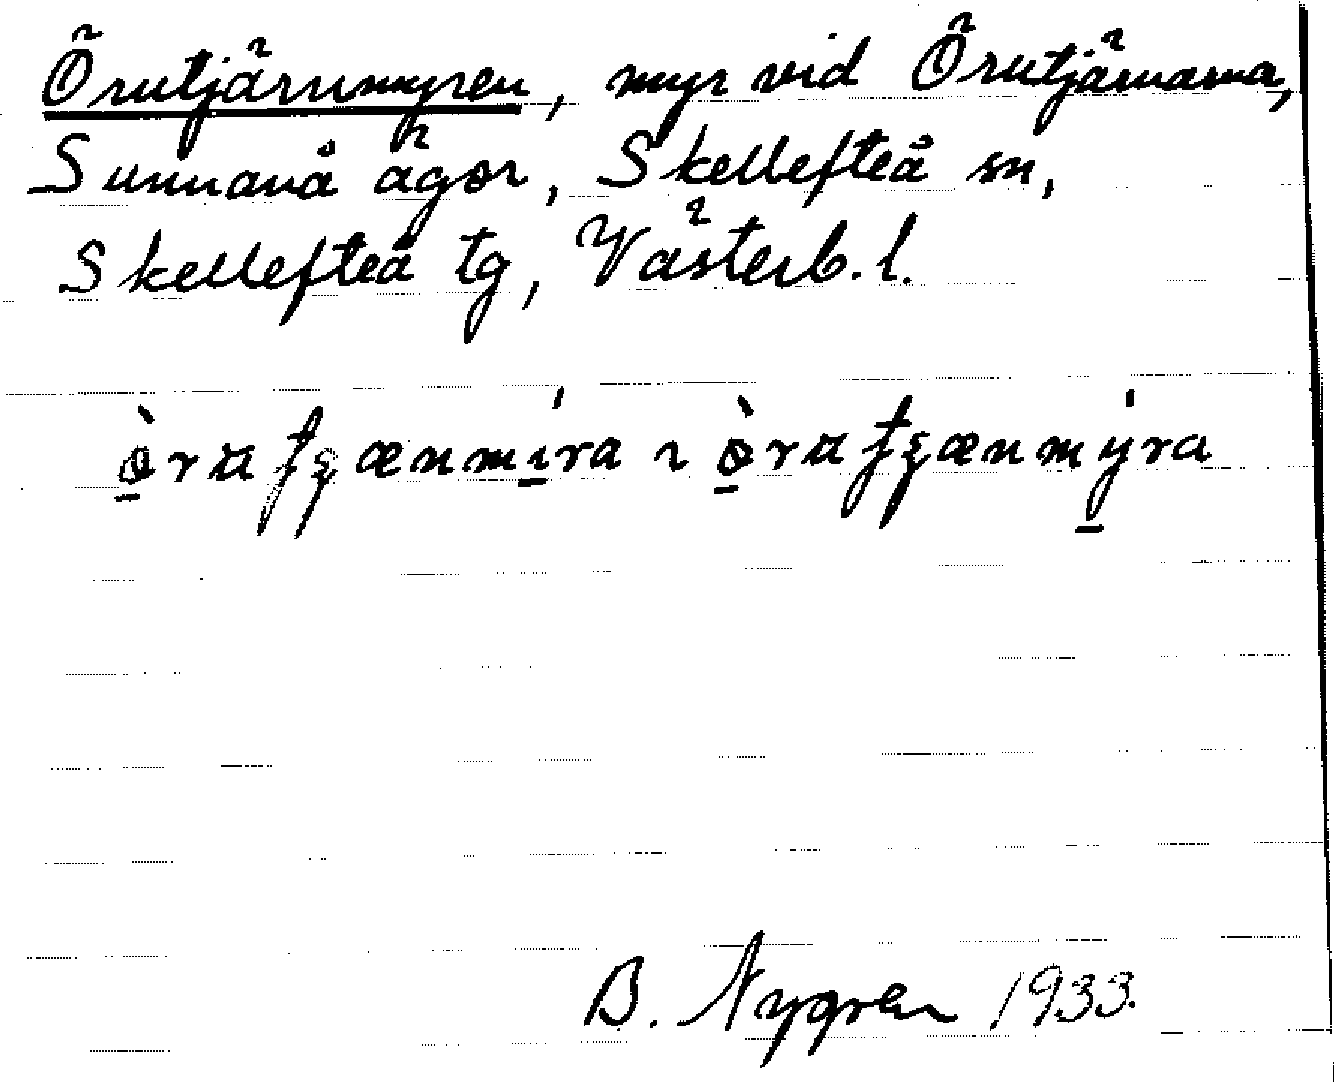 Örutjärnmyren, myr vid Örutjärnarna,
Sunnanå ägor, Skellefteå sn,
Skellefteå tg, Västerb. l.
B. Nygren 1933.